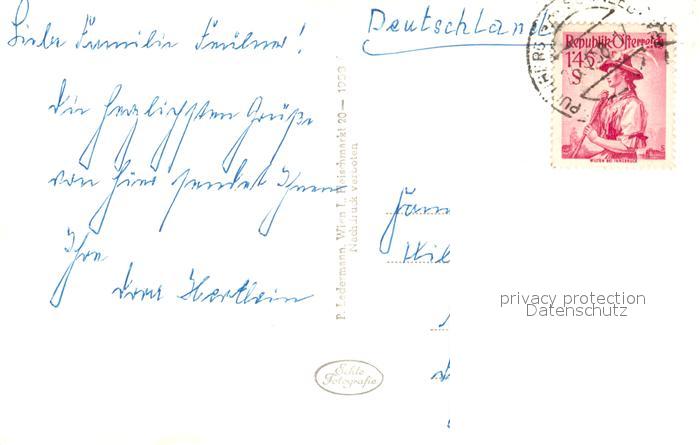 Liebe Familie
Deutschland
die herzlichsten Grüße
von hier sendet Ihnen
Ihre
Dora Hertlein
P. Ledermann, Wien I., Fleischmarkt 20—
Nachdruck verboten
Echte
Fotografie
Republik Österreich
1·45
S
WILTEN BEI INNSBRUCK
Fam
privacy protection
Datenschutz